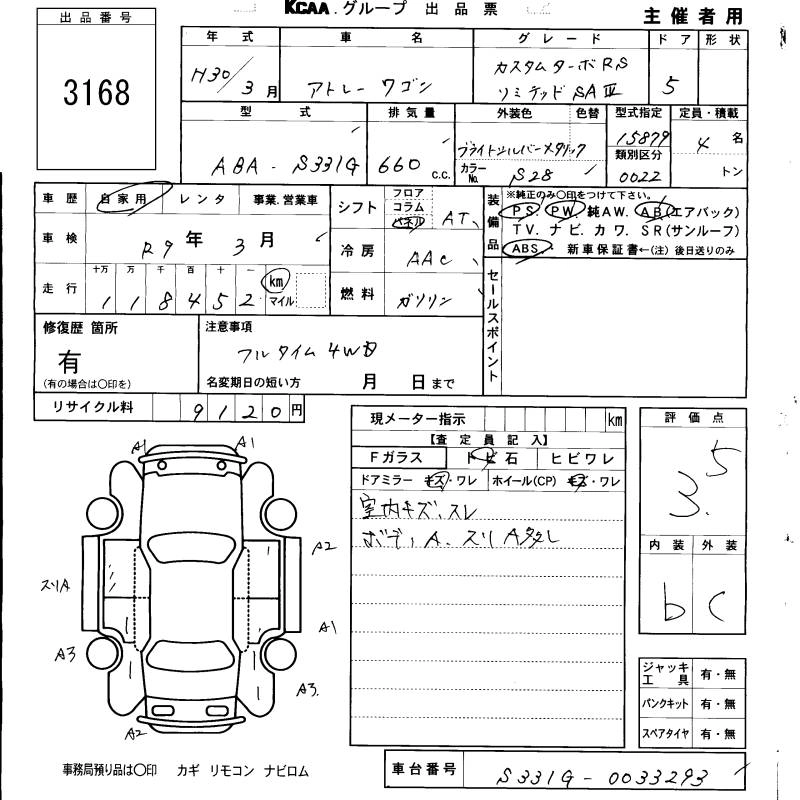 KCAA.グループ 出品票
主催者用
出品番号
3168
年式 車名 グレード ドア 形状
H30/3月 アトレーワゴン カスタムターボRS リミテッドSAⅢ 5
型式 排気量 外装色 色替 型式指定 定員・積載
ABA-S331G 660 c.c. ブライトシルバーメタリック 15879 4名
カラーNo. S28 類別区分 0022 トン
車歴 自家用 レンタ 事業.営業車
シフト フロア コラム パネル AT
装備品
※純正のみ〇印をつけて下さい。
PS. PW. 純AW. AB(エアバック)
TV. ナビ. カワ. SR(サンルーフ)
ABS. 新車保証書←(注)後日送りのみ
車検 R9年3月
冷房 AAC
走行 十万 万 千 百 十 一
118452 km マイル
燃料 ガソリン
セールスポイント
修復歴 箇所
有
(有の場合は〇印を)
注意事項
フルタイム4WD
名変期日の短い方 月 日まで
リサイクル料 9120円
現メーター指示 km
【査定員記入】
Fガラス トビ石 ヒビワレ
ドアミラー キズ・ワレ ホイール(CP) キズ・ワレ
室内キズ、スレ
ボディA、スリA多数し
評価点
3.5
内装 外装
b C
A1 A1
A2
スリA
A1
A3
A3.
A2
ジャッキ工具 有・無
パンクキット 有・無
スペアタイヤ 有・無
事務局預り品は〇印 カギ リモコン ナビロム
車台番号 S331G-0033293